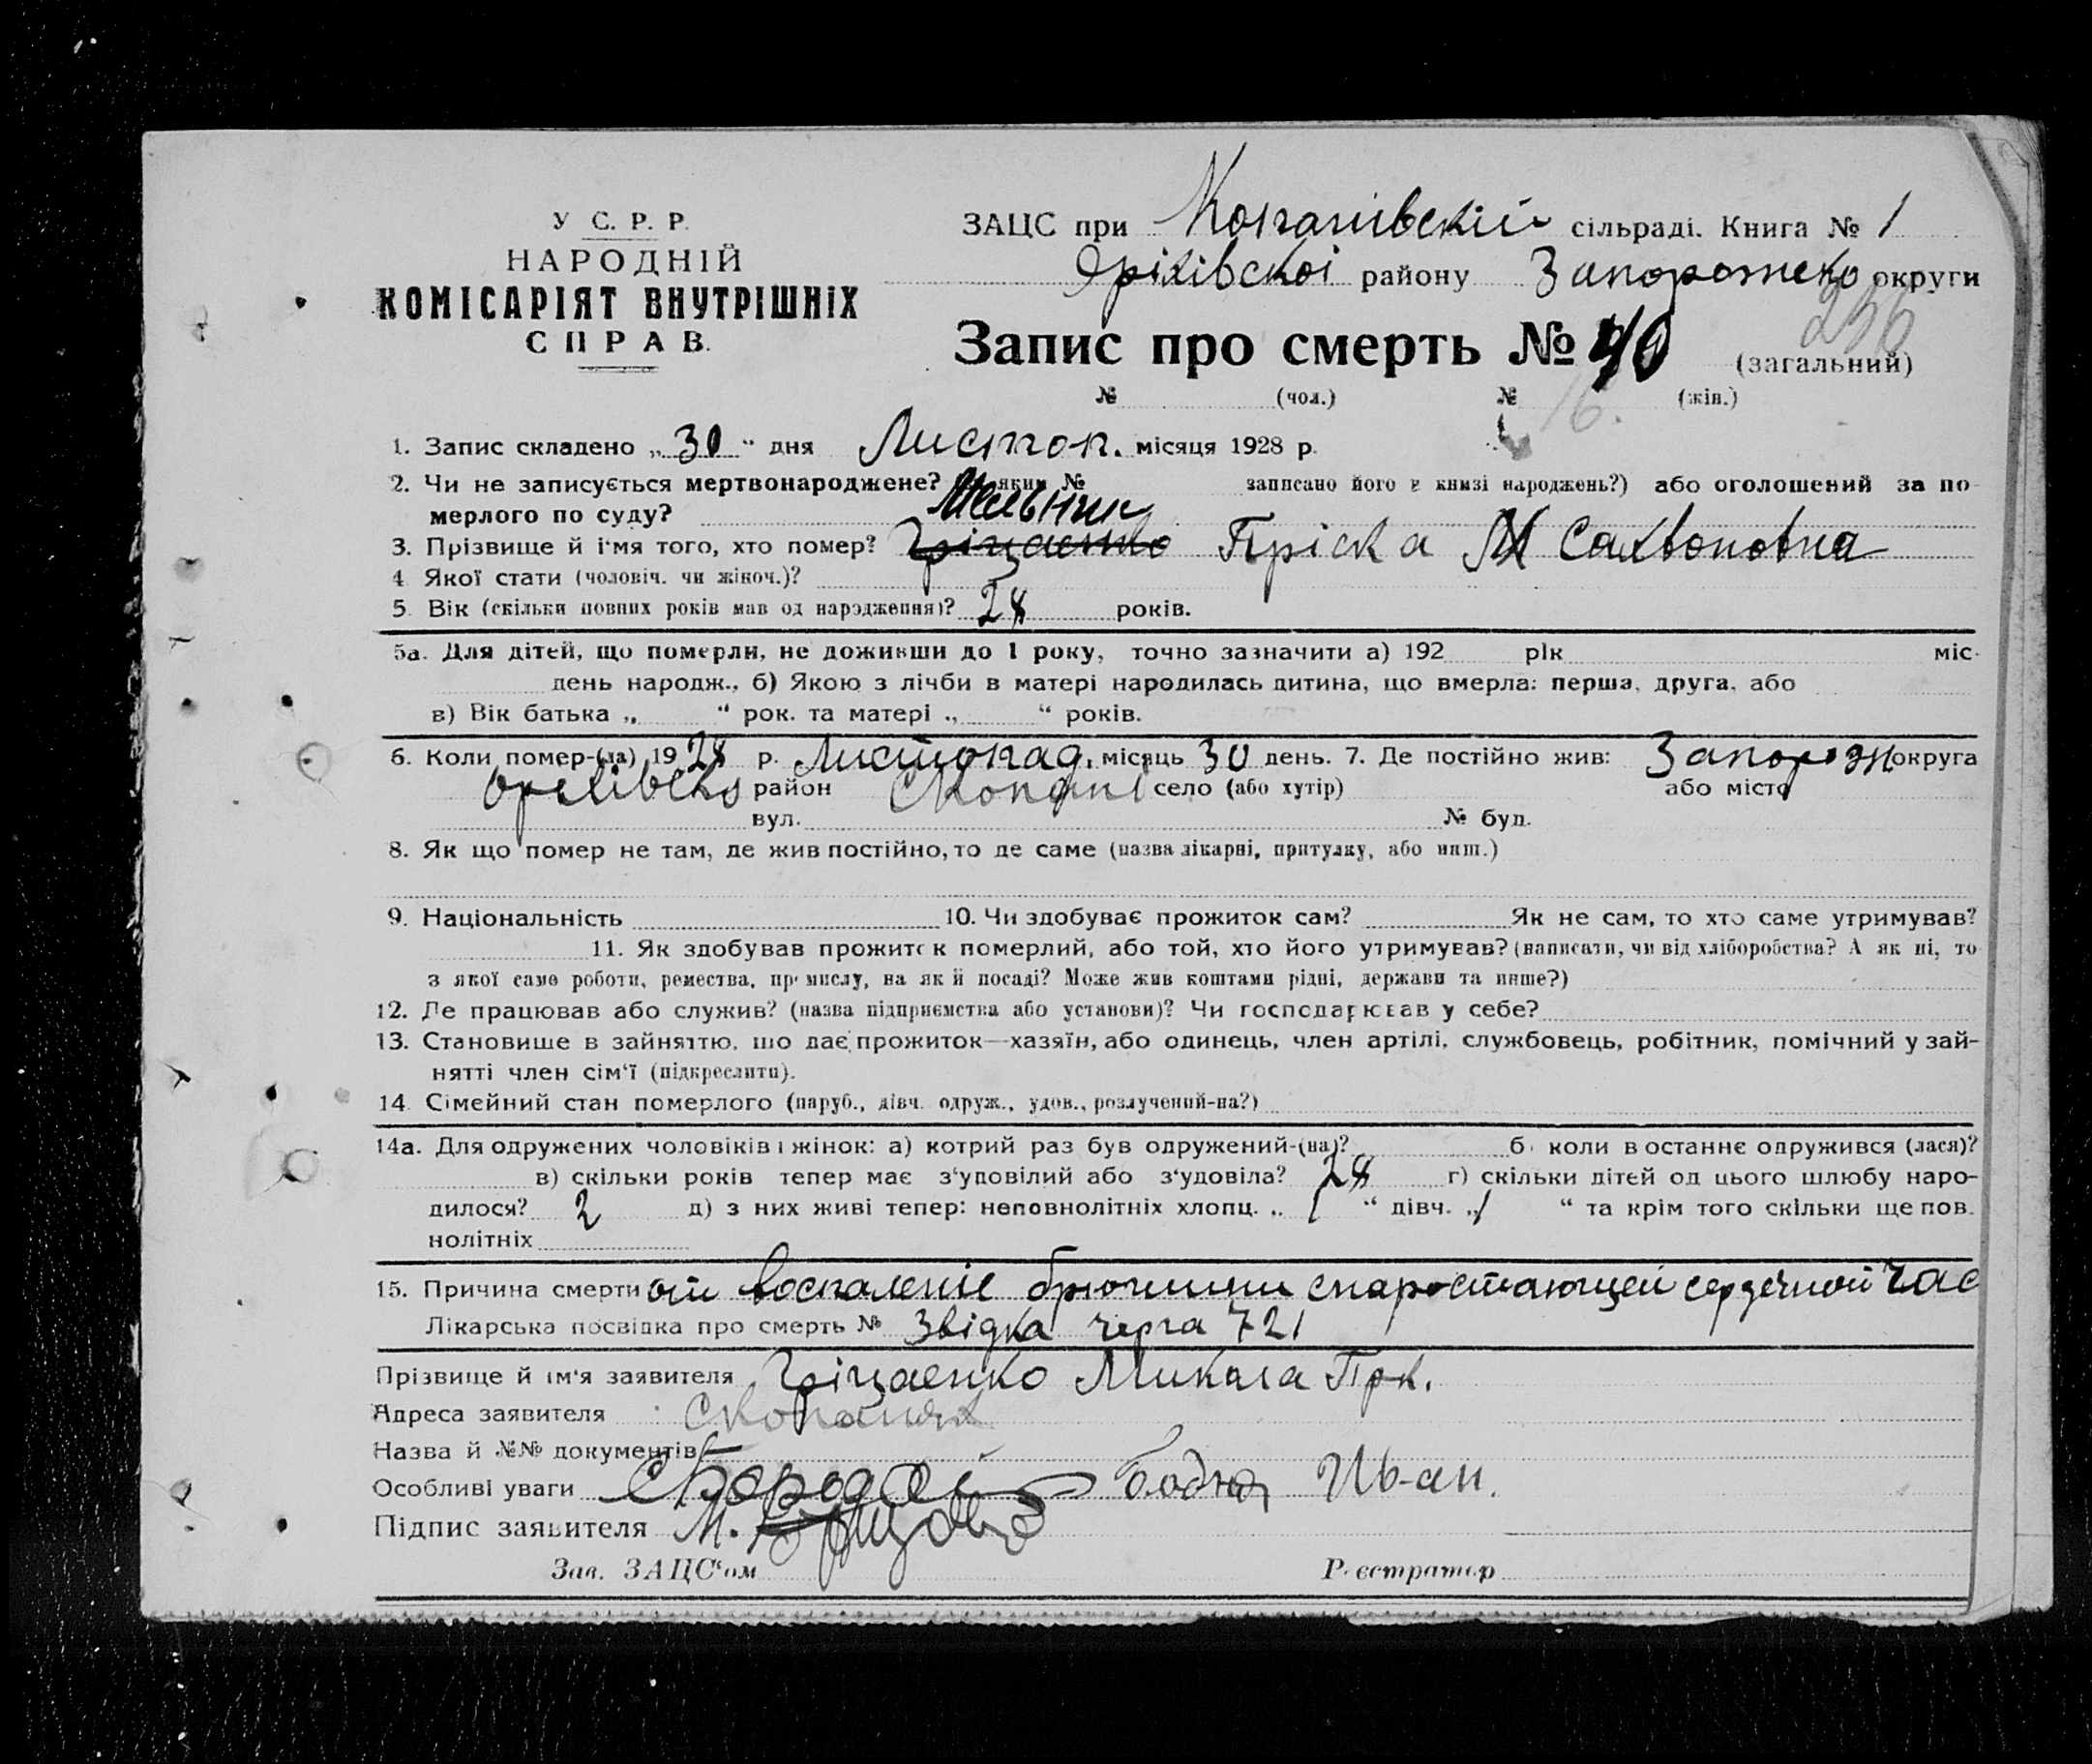 У С. Р. Р.
НАРОДНІЙ
КОМІСАРІЯТ ВНУТРІШНІХ
СПРАВ.
ЗАЦС при Копанівскій сільраді. Книга № 1
Оріхівскоі району Запорожско округи
236
Запис про смерть № 40 (загальний)
№ (чол.) № 16. (жін.)
1. Запис складено „30“ дня Листоп. місяця 1928 р.
2. Чи не записується мертвонароджене? яким № записано його в книзі народжень?) або оголошений за по-
мерлого по суду?
Мельник
3. Прізвище й і'мя того, хто помер? Гріцаенко Пріска М Сахвоновна
4 Якої стати (чоловіч. чи жіноч.)?
5. Вік (скільки повних років мав од народження)? 28 років.
5а. Для дітей, що померли, не доживши до 1 року, точно зазначити а) 192 рік міс.
день народж., б) Якою з лічби в матері народилась дитина, що вмерла: перша, друга, або
в) Вік батька „ “ рок. та матері „ “ років.
6. Коли помер-(ла) 1928 р. Листопад. місяць 30 день. 7. Де постійно жив: Запорож округа
район Скопані село (або хутір) або місто
вул. № буд.
8. Як що помер не там, де жив постійно, то де саме (назва лікарні, притулку, або инш.)
9. Національність 10. Чи здобуває прожиток сам? Як не сам, то хто саме утримував?
11. Як здобував прожиток померлий, або той, хто його утримував? (написати, чи від хліборобства? А як ні, то
з якої саме роботи, ремества, промислу, на як й посаді? Може жив коштами рідні, держави та инше?)
12. Де працював або служив? (назва підприємства або установи)? Чи господарював у себе?
13. Становище в зайняттю, що дає прожиток—хазяїн, або одинець, член артілі, службовець, робітник, помічний у зай-
нятті член сім'ї (підкреслити).
14. Сімейний стан померлого (паруб., дівч. одруж., удов., розлучений-на?)
14а. Для одружених чоловіків і жінок: а) котрий раз був одружений-(на)? б) коли востаннє одружився (лася)?
в) скільки років тепер має з'удовілий або з'удовіла? 28 г) скільки дітей од цього шлюбу наро-
дилося? 2 д) з них живі тепер: неповнолітніх хлопц. „1“ дівч. „1“ та крім того скільки ще пов.
нолітніх
15. Причина смерти от воспаление брюшини сердечной
Лікарська посвідка про смерть № Звідка черга 721
Прізвище й ім'я заявителя Гріцаенко Микола Прк.
Адреса заявителя Скопанях
Назва й №№ документів
Особливі уваги Ив-ан.
Підпис заявителя М.
Зав. ЗАЦС'ом Реєстратор